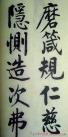 磨箴規仁慈
隱惻造次弗